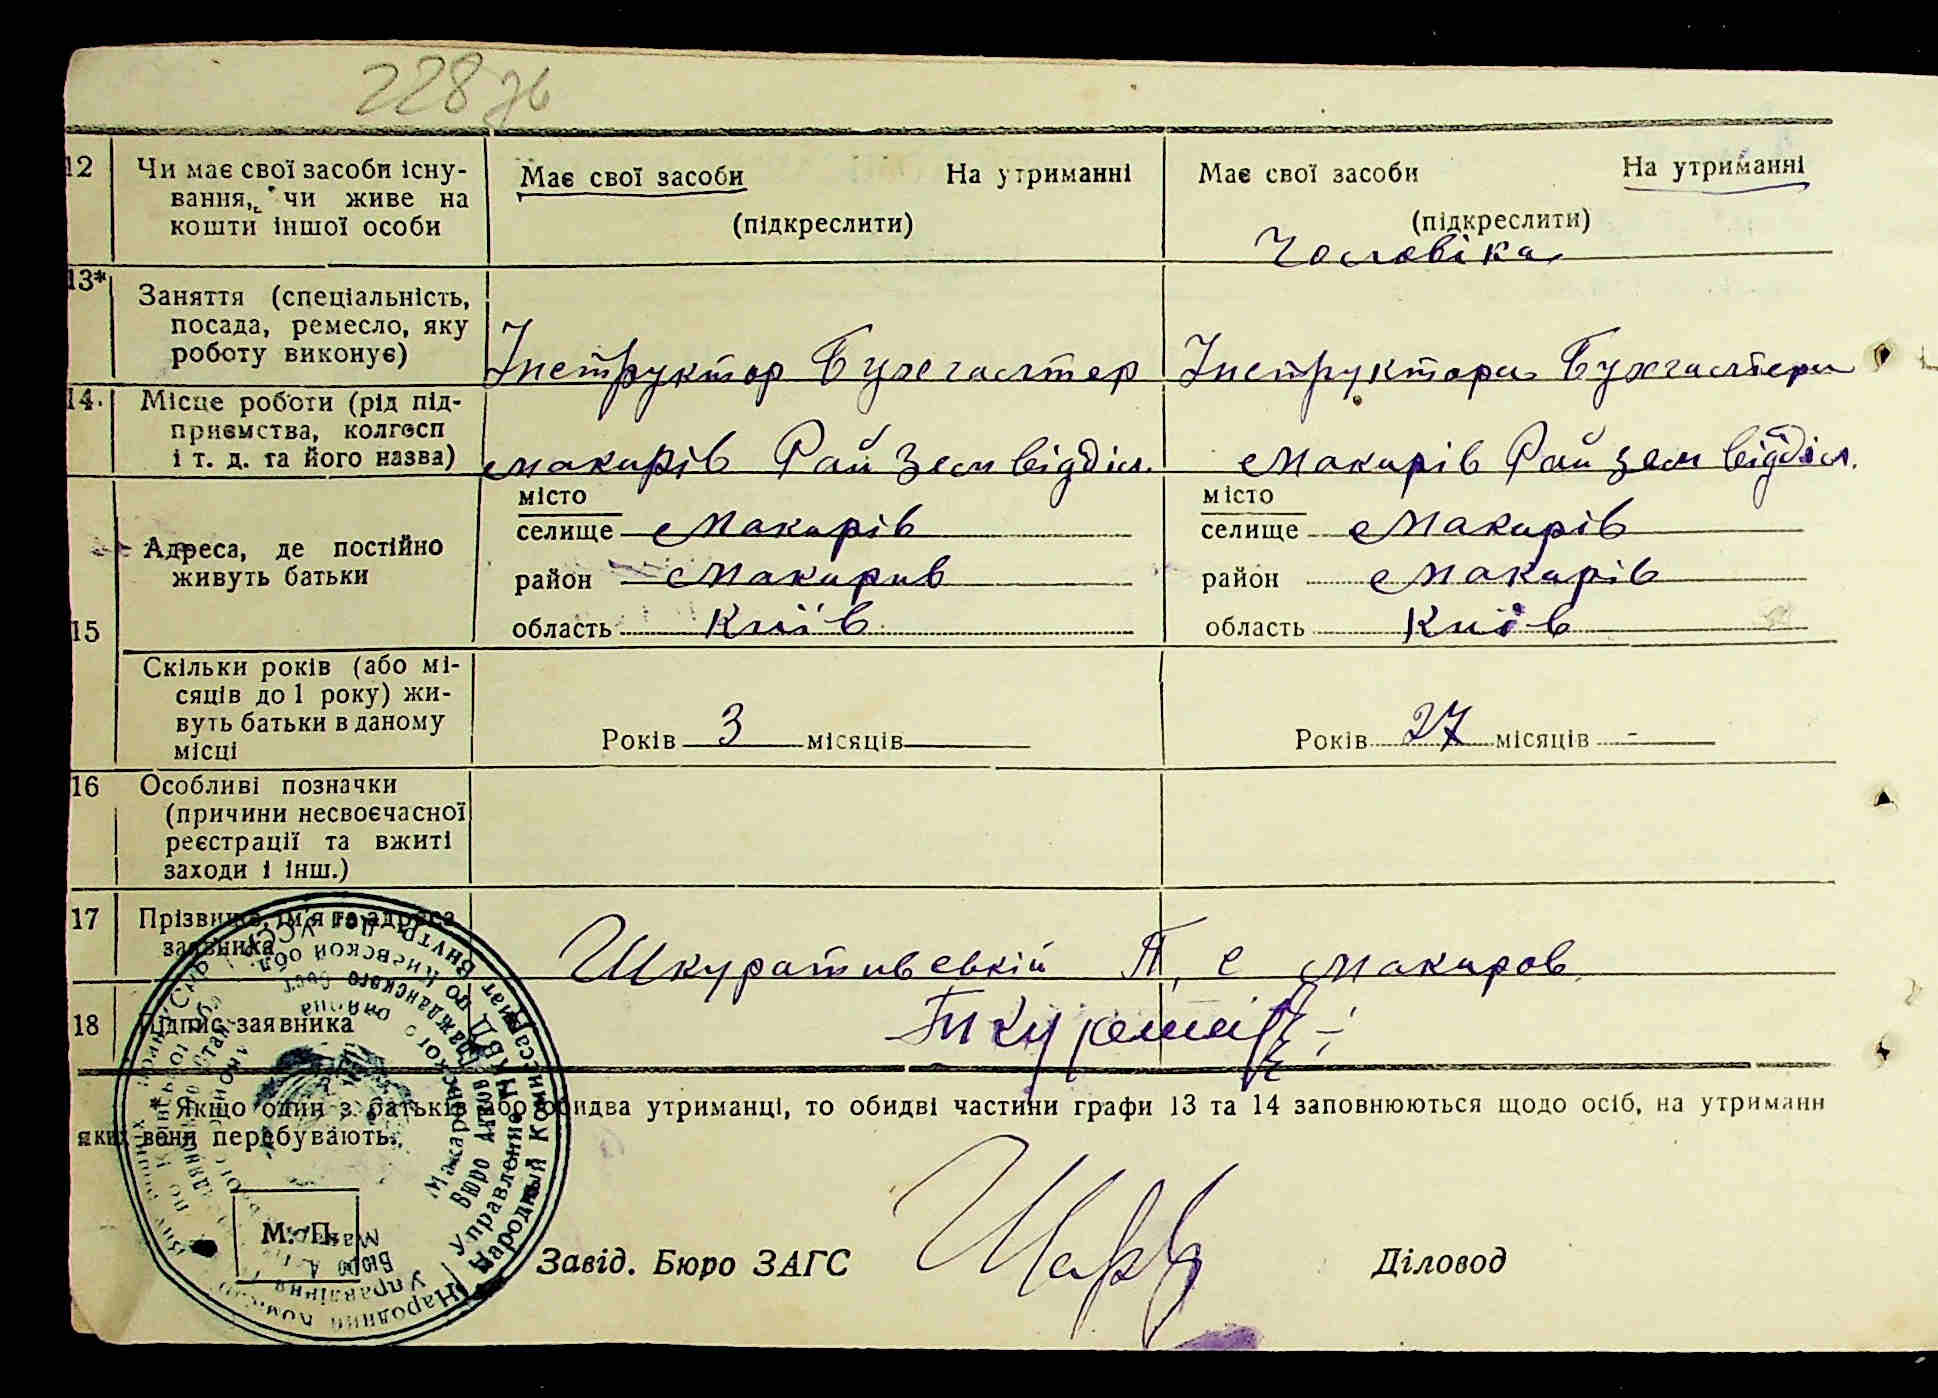 228 зв
12 Чи має свої засоби існу-
вання, чи живе на
кошти іншої особи
Має свої засоби На утриманні
(підкреслити)
Має свої засоби На утриманні
(підкреслити)
Чоловіка
13* Заняття (спеціальність,
посада, ремесло, яку
роботу виконує)
Інструктор Бухгалтер
Інструктора Бухгалтера
14. Місце роботи (рід під-
приємства, колгосп
і т. д. та його назва)
Макарів Райземвідділ.
Макарів Райземвідділ.
15 Адреса, де постійно
живуть батьки
місто
селище Макарів
район Макарив
область Київ
місто
селище Макарів
район Макарів
область Київ
Скільки років (або мі-
сяців до 1 року) жи-
вуть батьки в даному
місці
Років 3 місяців
Років 27 місяців -
16 Особливі позначки
(причини несвоєчасної
реєстрації та вжиті
заходи і інш.)
17 Прізвище, ім'я та адреса
заявника
Шкуративській П, с Макаров
18 Підпис заявника
* Якщо один з батьків або обидва утриманці, то обидві частини графи 13 та 14 заповнюються щодо осіб, на утриманн
яких вони перебувають.
М. П.
Завід. Бюро ЗАГС
Діловод
Народный Комиссариат Внутр.
Управление НКВД по Киевской обл.
Бюро Актов Гражданского Сост.
Макаровского района